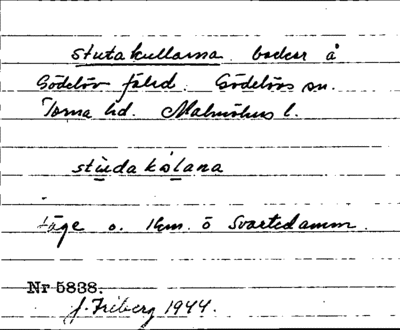 Stutakullarna backar å
Gödelöv fälad. Gödelövs sn.
Torna hd. Malmöhus l.
stùda kɔ̀lana
Läge o. 1km. ö Svartedamm.
Nr 5838.
J. Friberg 1944.